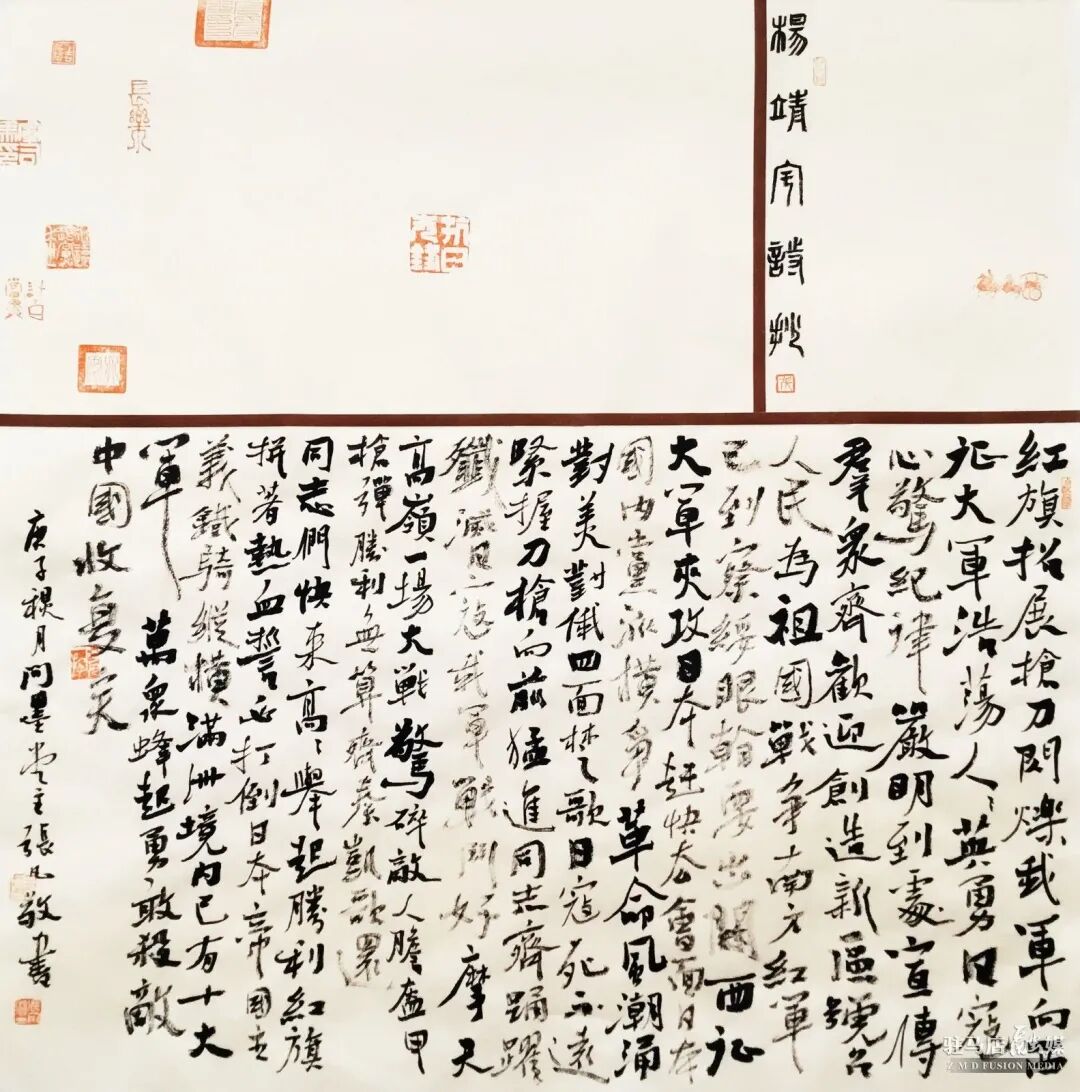 楊靖宇詩抄
紅旗招展槍刀閃爍我軍向西
征大軍浩蕩人〻英勇日寇
心驚紀律嚴明到處宣傳
羣衆齊歡迎創造新區號召
人民為祖國戰爭南方紅軍
已到察綏眼要出關西征
大軍夾攻日本趕快去會面日本
國内黨派橫爭革命風潮涌
對美對俄四面楚歌日寇死不遠
緊握刀槍向前猛進同志齊踴躍
殲滅日寇我軍戰鬥好摩天
高嶺一場大戰驚碎敵人膽盔甲
槍彈勝利無算齊奏凱歌還
同志們快來高〻舉起勝利紅旗
拼著熱血誓必打倒日本帝國主
義鐵騎縱橫滿洲境内已有十大
軍萬衆蜂起勇敢殺敵
中國收復
庚子月問墨堂主張凡敬書
驻马店融媒
Z M D FUSION MEDIA